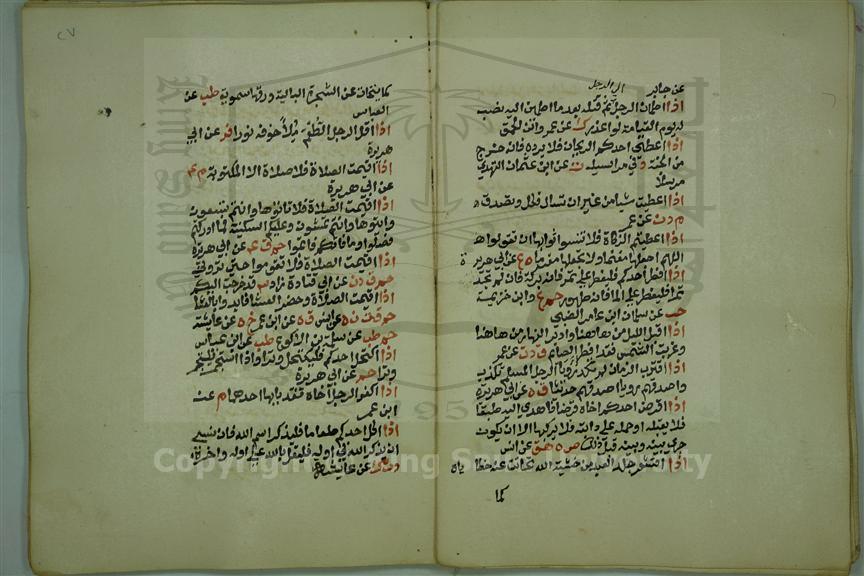 عن جابر
الى الرجل
اذا اطمأن الرجل الى الرجل ثم قتله بعد ما اطمأن اليه نصب
له يوم القيامة لواء غدر ك عن عمرو ابن الحمق
اذا اعطى احدكم الريحان فلا يرده فانه خرج
من الجنة د في مراسيله ت عن ابن عثمان النهدي
مرسلا
اذا اعطيت شيا من غير ان تسال فكل وتصدق
م د ن عن عمر
اذا اعطيتم الزكاة فلا تنسوا ثوابها ان تقولوا
اللهم اجعلها مغنما ولا تجعلها مغرما ه ع عن ابي هريرة
اذا افطر احدكم فليفطر على تمر فانه بركة فان لم يجد
تمرا فليفطر على الماء فانه طهور حم ع وابن خزيمة
حب عن سلمان ابن عامر الضبي
اذا اقبل الليل من هاهنا وادبر النهار من هاهنا
وغربت الشمس فقد افطر الصائم ق د ت عن عمر
اذا اقترب الزمان لم تكد رؤيا الرجل المسلم تكذب
واصدقهم رويا اصدقهم حديثا ق ه عن ابي هريرة
اذا اقرض احدكم اخاه قرضا فاهدى اليه طبقا
فلا يقبله او حمله على دابته فلا يركبها الا ان يكون
جرى بينه وبينه قبل ذلك ص ه هق عن انس
اذا اقشعر جلد العبد من خشية الله تحاتت عنه خطاياه
كما
كما يتحات عن الشجرة البالية ورقها سموية طب عن
العباس
اذا اقل الرجل الطعم ملأ جوفه نورا فر عن ابي
هريرة
اذا اقيمت الصلاة فلا صلاة الا المكتوبة م ع
عن ابي هريرة
اذا اقيمت الصلاة فلا تاتوها وانتم تسعون
واتوها وانتم تمشون وعليكم السكينة فما ادركتم
فصلوا وما فاتكم فاتموا حم ق ع عن ابي هريرة
اذا اقيمت الصلاة فلا تقوموا حتى تروني
حم ق د ن عن ابي قتادة زاد قد خرجت اليكم
اذا اقيمت الصلاة وحضر العشا فابدوا بالعشا
حم ق ت ن ه عن انس ق ه عن ابن عمر خ ه عن عايشة
حم طب عن سلمة بن الاكوع طب عن ابن عباس
اذا اكتحل احدكم فليكتحل وترا واذا استجمر فليستجمر
وترا حم عن ابي هريرة
اذا اكفر الرجل اخاه فقد باء بها احدهما م عن
ابن عمر
اذا اكل احدكم طعاما فليذكر اسم الله فان نسي
ان يذكر الله في اوله فليقل بالله على اوله واخره
د ت ك عن عايشة